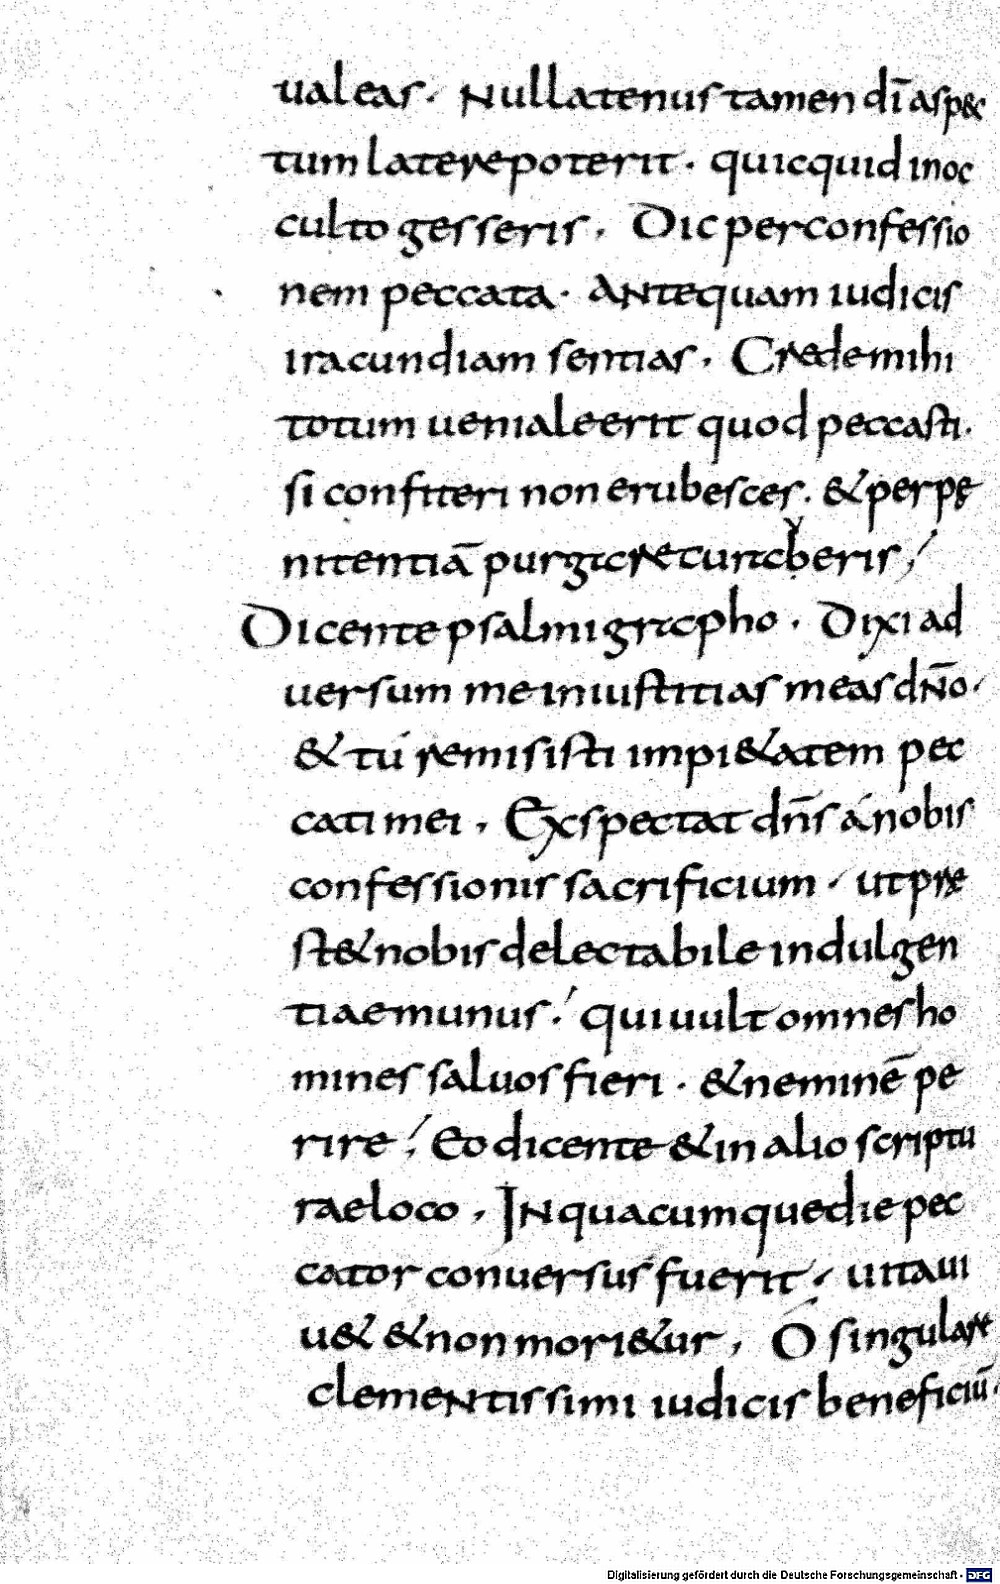 ualeas. Nullatenus tamen dī asp&
tum latere poterit. quicquid inoc
culto gesseris. Dic per confessio
nem peccata. Antequam iudicis
iracundiam sentias. Crede mihi
totum ueniale erit quod peccasti.
si confiteri non erubesces. & per pę
nitentiā purgare curaberis;
Dicente psalmigrapho. Dixi ad
uersum me iniustitias meas dn̄o.
& tú remisisti impi&atem pec
cati mei. Exspectat dn̄s á nobis
confessionis sacrificium. ut prę
st& nobis delectabile indulgen
tiae munus. qui uult omnes ho
mines saluos fieri. & neminē pe
rire; Eo dicente & in alio scriptu
rae loco. In quacumque die pec
cator conuersus fuerit. uita ui
u& & non mori&ur. Ó singulare
clementissimi iudicis beneficiū.
Digitalisierung gefördert durch die Deutsche Forschungsgemeinschaft - DFG